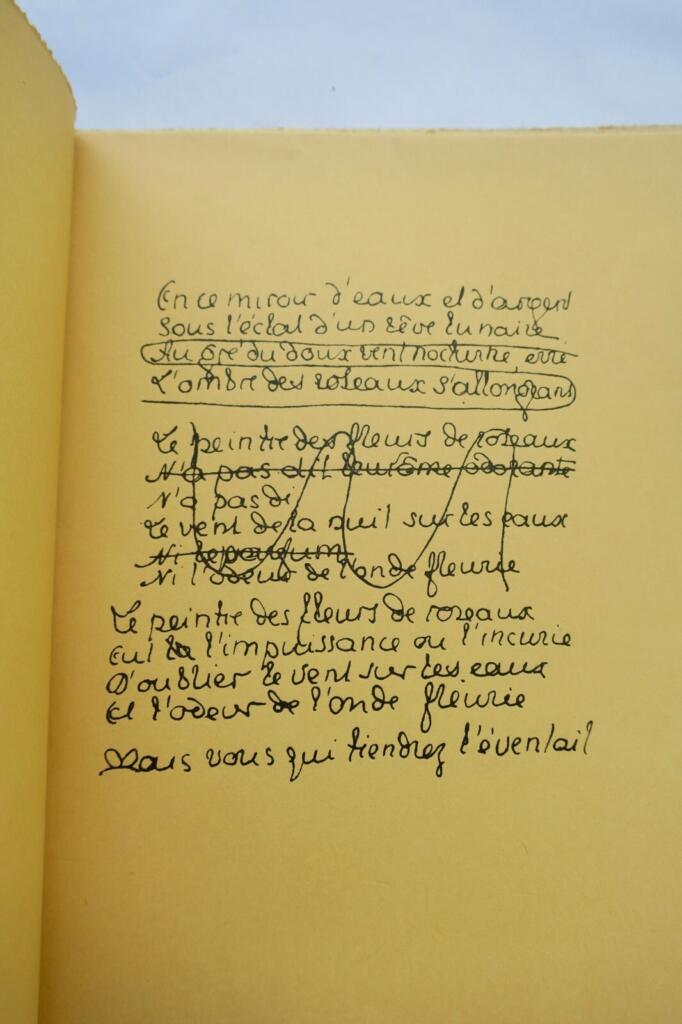 En ce miroir d'eaux et d'argent
Sous l'éclat d'un rêve lunaire
Au gré du doux vent nocturne, erre
L'ombre des roseaux s'allongeant
Le peintre des fleurs de roseaux
N'a pas dit leur arôme odorante
N'a pas di
Le vent de la nuit sur les eaux
Ni le parfum
Ni l'odeur de l'onde fleurie
Le peintre des fleurs de roseaux
Eut l'impuissance ou l'incurie
D'oublier le vent sur les eaux
Et l'odeur de l'onde fleurie
Mais vous qui tiendrez l'éventail